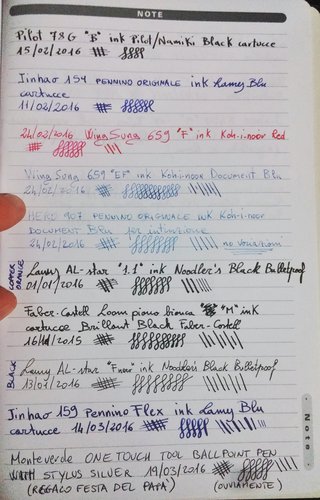 NOTE
Pilot 78G "B" ink Pilot/Namiki Black cartucce
15/02/2016
Jinhao 159 PENNINO ORIGINALE ink Lamy Blu
cartucce
11/02/2016
24/02/2016 Wing Sung 659 "F" ink Koh-i-noor Red
Wing Sung 659 "EF" ink Koh-i-noor Document Blu
24/02/2016
HERO 907 PENNINO ORIGINALE ink Koh-i-noor
DOCUMENT Blu per intinzione
24/02/2016 no variazioni
COPPER
ORANGE
Lamy AL-star "1.1" ink Noodler's Black Bulletproof
01/01/2016
Faber-Castell Loom piano bianca "M" ink
cartucce Brillant Black Faber-Castell
2015
BLACK
Lamy AL-star ink Noodler's Black Bulletproof
13/07/2016
Jinhao 159 Pennino Flex ink Lamy Blu
cartucce 14/03/2016
Monteverde ONE TOUCH TOOL BALLPOINT PEN
WITH STYLUS SILVER 19/03/2016
(REGALO FESTA DEL PAPÀ) (OVVIAMENTE)
Note